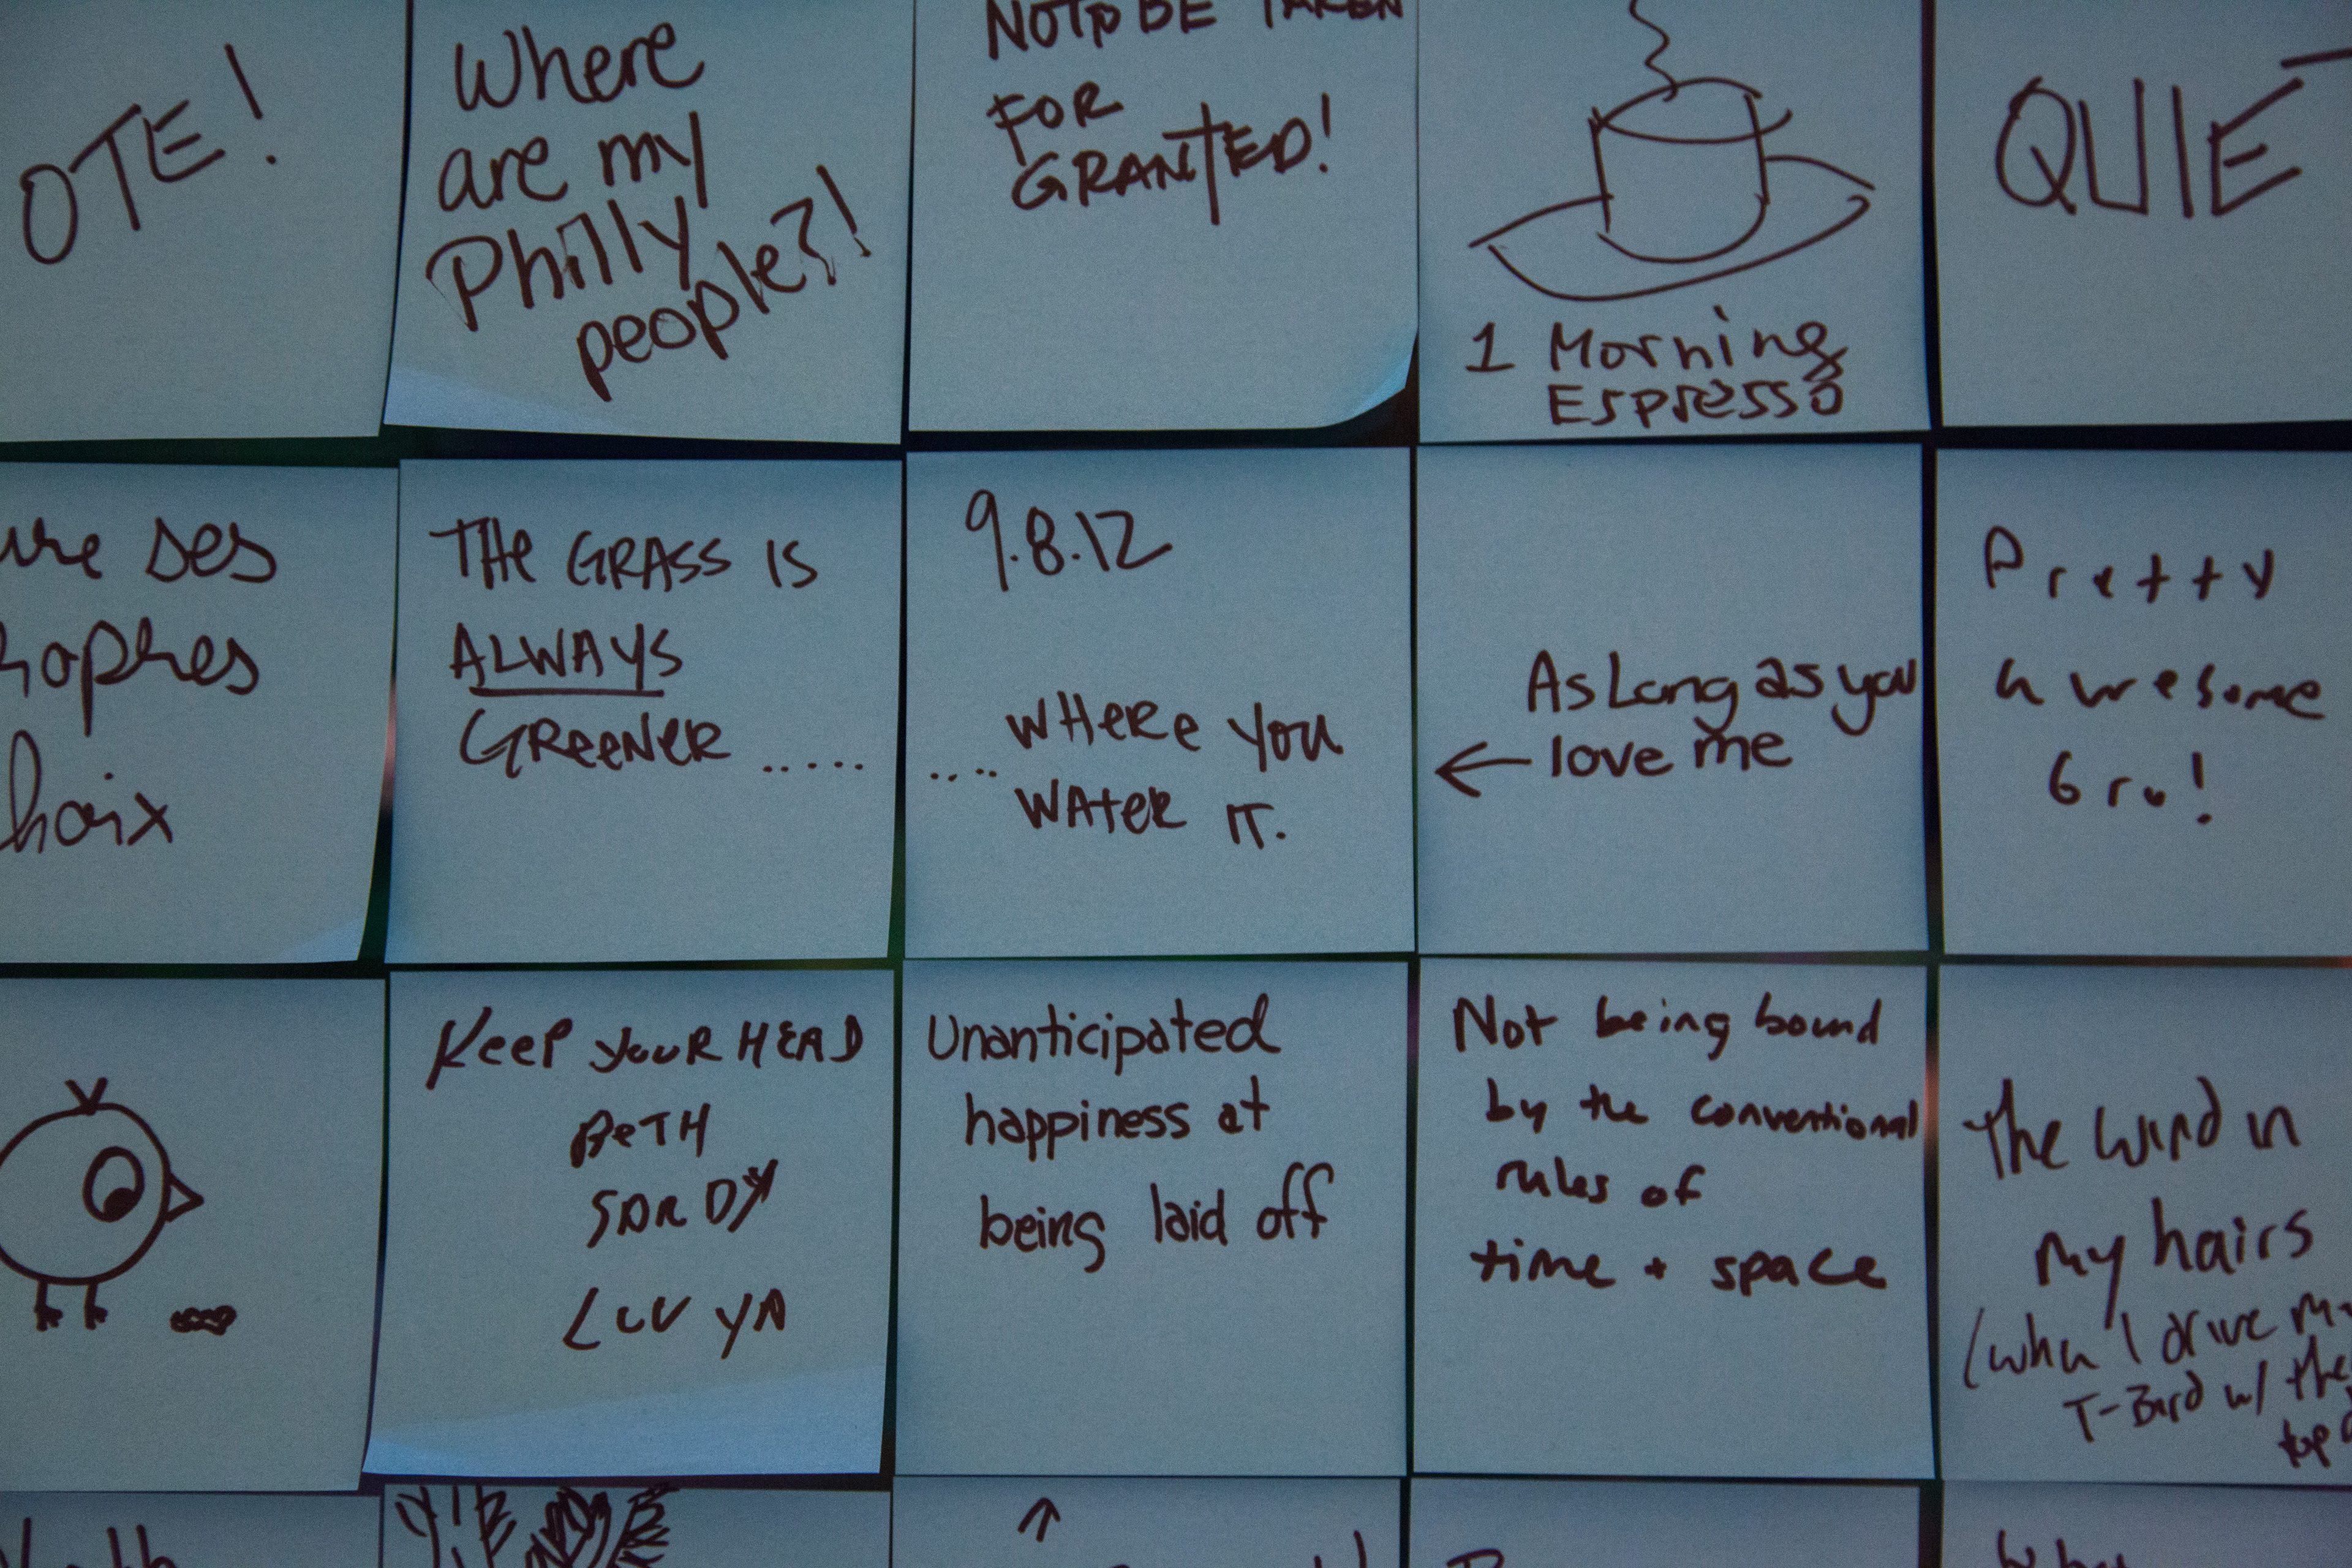 OTE!
Where
are my
Philly
people?!
NOT TO BE TAKEN
FOR
GRANTED!
1 Morning
Espresso
QUIET
ses
THE GRASS IS
ALWAYS
GREENER .....
9.8.12
.... WHERE YOU
WATER IT.
As Long as you
← love me
Pretty
awesome
Gru!
KEEP YOUR HEAD
BETH
SARDY
LUV YA
Unanticipated
happiness at
being laid off
Not being bound
by the conventional
rules of
time + space
The wind in
my hairs
(when I drive my
T-Bird w/ the
top